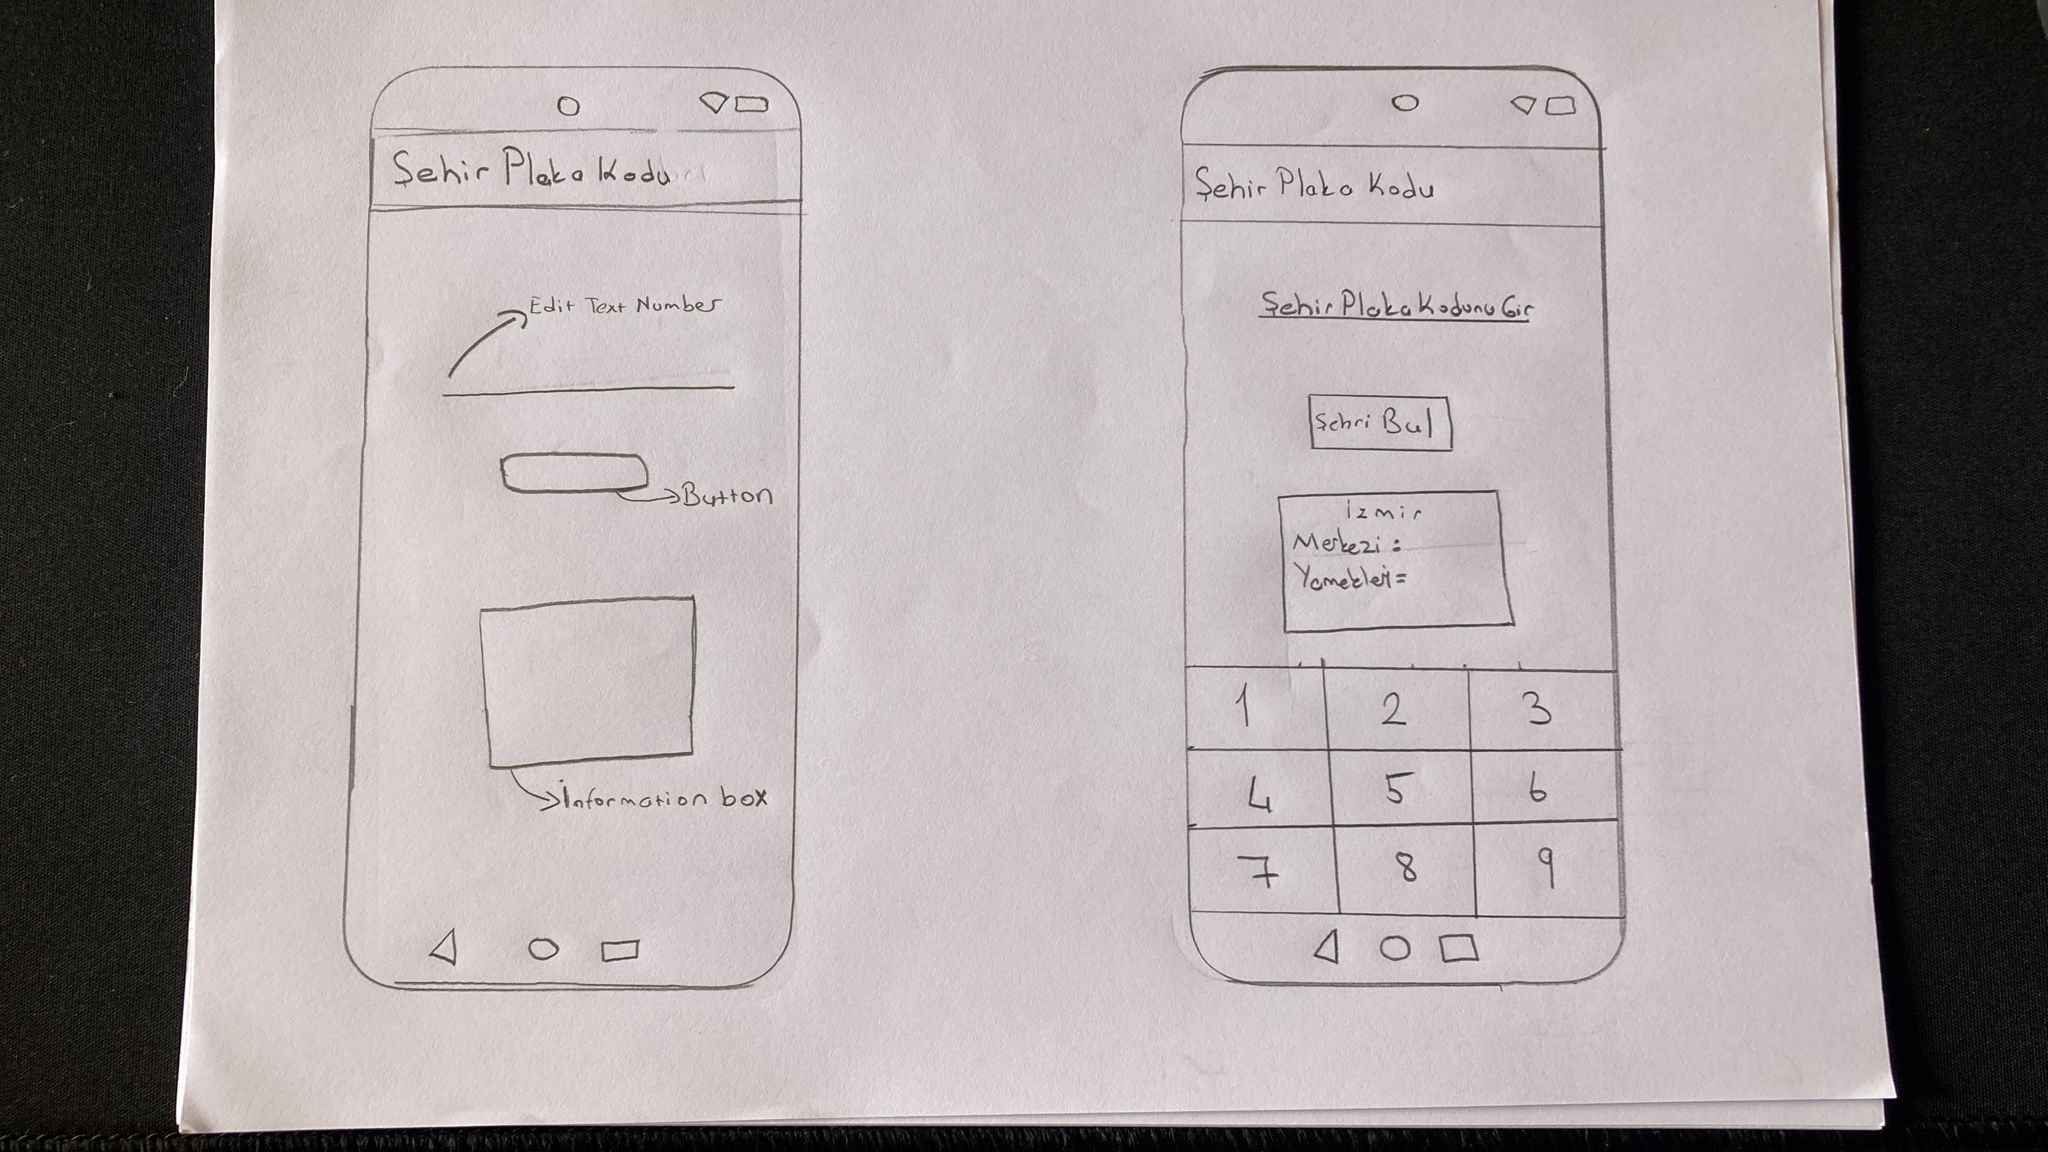 Şehir Plaka Kodu
Edit Text Number
Button
İnformation box
Şehir Plaka Kodu
Şehir Plaka Kodunu Gir
Şehri Bul
İzmir
Merkezi :
Yemekleri =
1 2 3
4 5 6
7 8 9